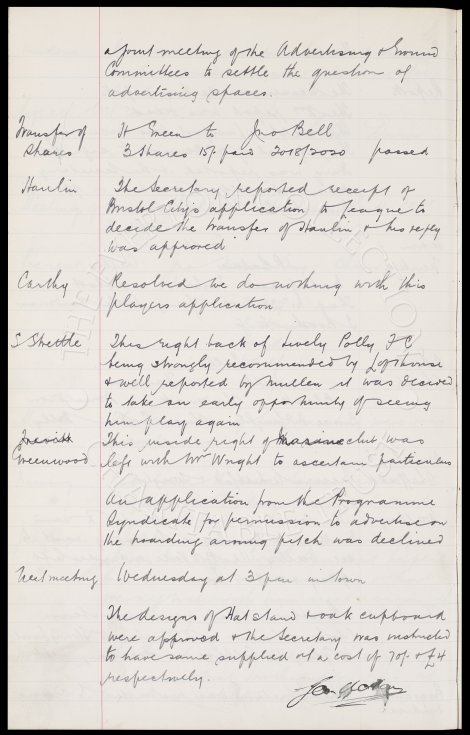 a joint meeting of the Advertising & Ground
Committees to settle the question of
advertising spaces.
Transfer of Shares
H Green to Jno Bell
3 Shares 15/- paid 2018/2020 passed
Hanlin
The Secretary reported receipt of
Bristol City's application to league to
decide the transfer of Hanlin & his reply
was approved
Carthy
Resolved we do nothing with this
players application
S Shettle
This right back of Lively Polly FC
being strongly recommended by Lofthouse
& well reported by Mullen it was decided
to take an early opportunity of seeing
him play again
Greenwood
This inside right of Marine club, was
left with Mr Wright to ascertain particulars
An application from the Programme
Syndicate for permission to advertise on
the hoarding around pitch was declined
Next meeting
Wednesday at 3 pm in town
The designs of Hat stand & oak cupboard
were approved & the Secretary was instructed
to have same supplied at a cost of 70/- & £4
respectively.